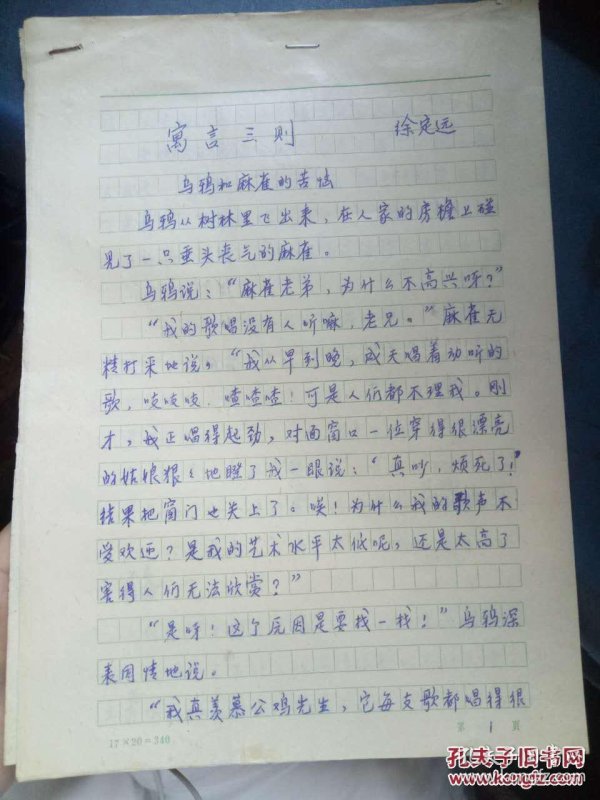 寓言三则　　徐定远
乌鸦和麻雀的苦恼
乌鸦从树林里飞出来，在人家的房檐上碰
见了一只垂头丧气的麻雀。
乌鸦说：“麻雀老弟，为什么不高兴呀？”
“我的歌唱没有人听嘛，老兄。”麻雀无
精打采地说，“我从早到晚，成天唱着动听的
歌，吱吱吱，喳喳喳！可是人们都不理我。刚
才，我正唱得起劲，对面窗口一位穿得很漂亮
的姑娘狠狠地瞪了我一眼说：‘真吵，烦死了！’
结果把窗门也关上了。唉！为什么我的歌声不
受欢迎？是我的艺术水平太低呢，还是太高了
害得人们无法欣赏？”
“是呀！这个原因是要找一找！”乌鸦深
表同情地说。
“我真羡慕公鸡先生，它每支歌都唱得很
17×20=340
第 1 页
孔夫子旧书网
www.kongfz.com